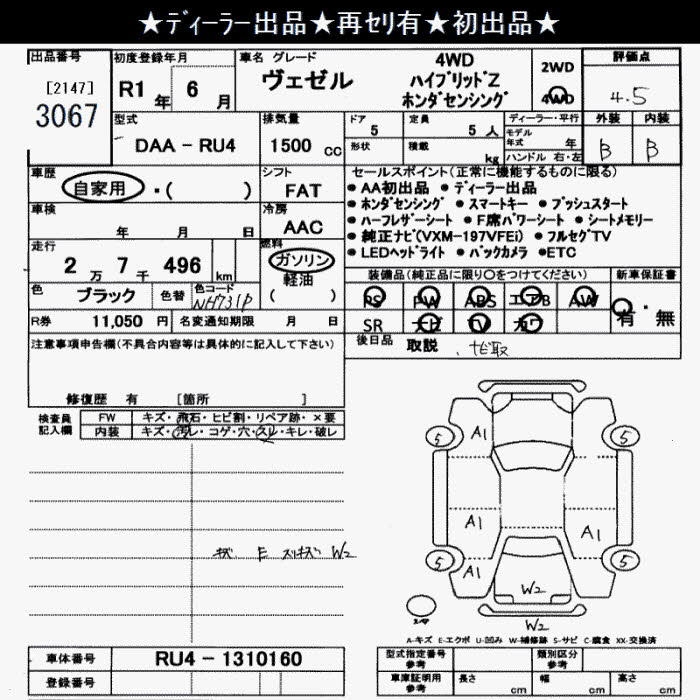 ★ディーラー出品★再セリ有★初出品★
出品番号
[2147]
3067
初度登録年月
R1 年 6 月
車名 グレード
ヴェゼル
4WD
ハイブリッドZ
ホンダセンシング
2WD
4WD
評価点
4.5
外装 内装
B B
型式
DAA－RU4
排気量
1500 cc
ドア
5
形状
定員
5 人
積載
kg
ディーラー・平行
モデル年式 年
ハンドル 右・左
車歴
自家用 ・( )
シフト
FAT
車検
年 月 日
冷房
AAC
走行
2 万 7 千 496 km
燃料
ガソリン
軽油
( )
色
ブラック
色替
色コード
NH731P
R券 11,050 円
名変通知期限 月 日
セールスポイント(正常に機能するものに限る)
● AA初出品 ● ディーラー出品
● ホンダセンシング ● スマートキー ● プッシュスタート
● ハーフレザーシート ● F席パワーシート ● シートメモリー
● 純正ナビ(VXM-197VFEi) ● フルセグTV
● LEDヘッドライト ● バックカメラ ●ETC
装備品(純正品に限り○をつけてください)
PS PW ABS エアB AW
SR ナビ TV カワ
新車保証書
有・無
後日品 取説 、ナビ取
注意事項申告欄(不具合内容等は具体的に記入して下さい)
修復歴 有 [箇所 ]
検査員記入欄
FW キズ・飛石・ヒビ割・リペア跡・×要
内装 キズ・汚レ・コゲ・穴・スレ・キレ・破レ
キズ E スリキズ W2
5 A1 5
A1 A1
5 A1 5
W2
W2
A-キズ E-エクボ U-凹み W-補修跡 S-サビ C-腐食 XX-交換済
車体番号 RU4－1310160
登録番号
型式指定番号参考
類別区分参考
車庫証明用参考
長さ cm
幅 cm
高さ cm